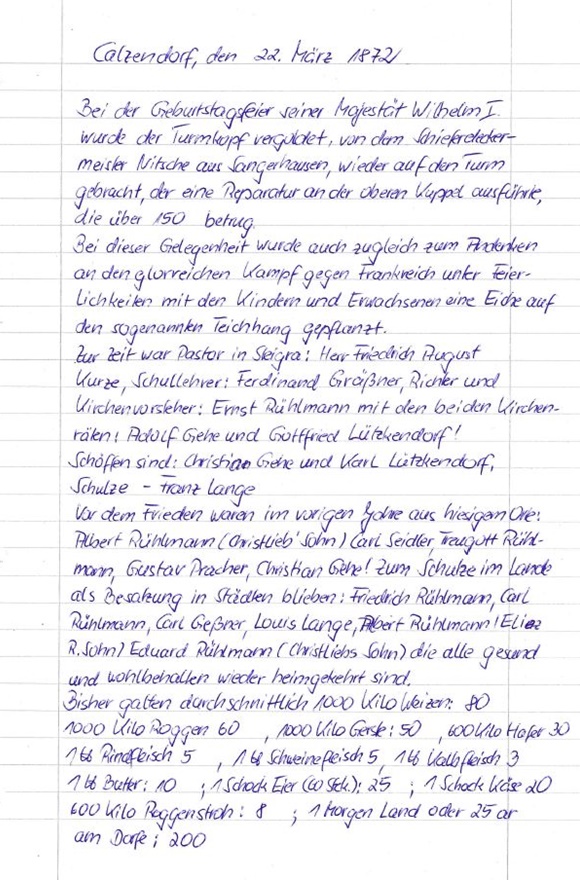 Calzendorf, den 22. März 1872
Bei der Geburtstagsfeier seiner Majestät Wilhelm I.
wurde der Turmkopf vergoldet, von dem Schieferdecker-
meister Nitsche aus Sangerhausen, wieder auf den Turm
gebracht, der eine Reparatur an der oberen Kuppel ausführte,
die über 150 betrug.
Bei dieser Gelegenheit wurde auch zugleich zum Andenken
an den glorreichen Kampf gegen Frankreich unter Feier-
lichkeiten mit den Kindern und Erwachsenen eine Eiche auf
den sogenannten Teichhang gepflanzt.
Zur Zeit war Pastor in Steigra: Herr Friedrich August
Kurze, Schullehrer: Ferdinand Gräßner, Richter und
Kirchenvorsteher: Ernst Rühlmann mit den beiden Kirchen-
räten: Adolf Gehe und Gottfried Lützkendorf!
Schöffen sind: Christian Gehe und Karl Lützkendorf,
Schulze - Franz Lange
Vor dem Frieden waren im vorigen Jahre aus hiesigem Orte:
Albert Rühlmann (Christlieb' Sohn) Carl Seidler, Traugott Rühl-
mann, Gustav Pracher, Christian Gehe! Zum Schutze im Lande
als Besatzung in Städten blieben: Friedrich Rühlmann, Carl
Rühlmann, Carl Geßner, Louis Lange, Albert Rühlmann! Elias
R. Sohn) Eduard Rühlmann (Christliebs Sohn) die alle gesund
und wohlbehalten wieder heimgekehrt sind.
Bisher galten durchschnittlich 1000 Kilo Weizen: 80
1000 Kilo Roggen 60 , 1000 Kilo Gerste: 50 , 600 Kilo Hafer 30
1 ℔ Rindfleisch 5 , 1 ℔ Schweinefleisch 5, 1 ℔ Kalbfleisch 3
1 ℔ Butter: 10 ; 1 Schock Eier (60 Stck.): 25 ; 1 Schock Käse 20
600 Kilo Roggenstroh: 8 ; 1 Morgen Land oder 25 ar
am Dorfe: 200